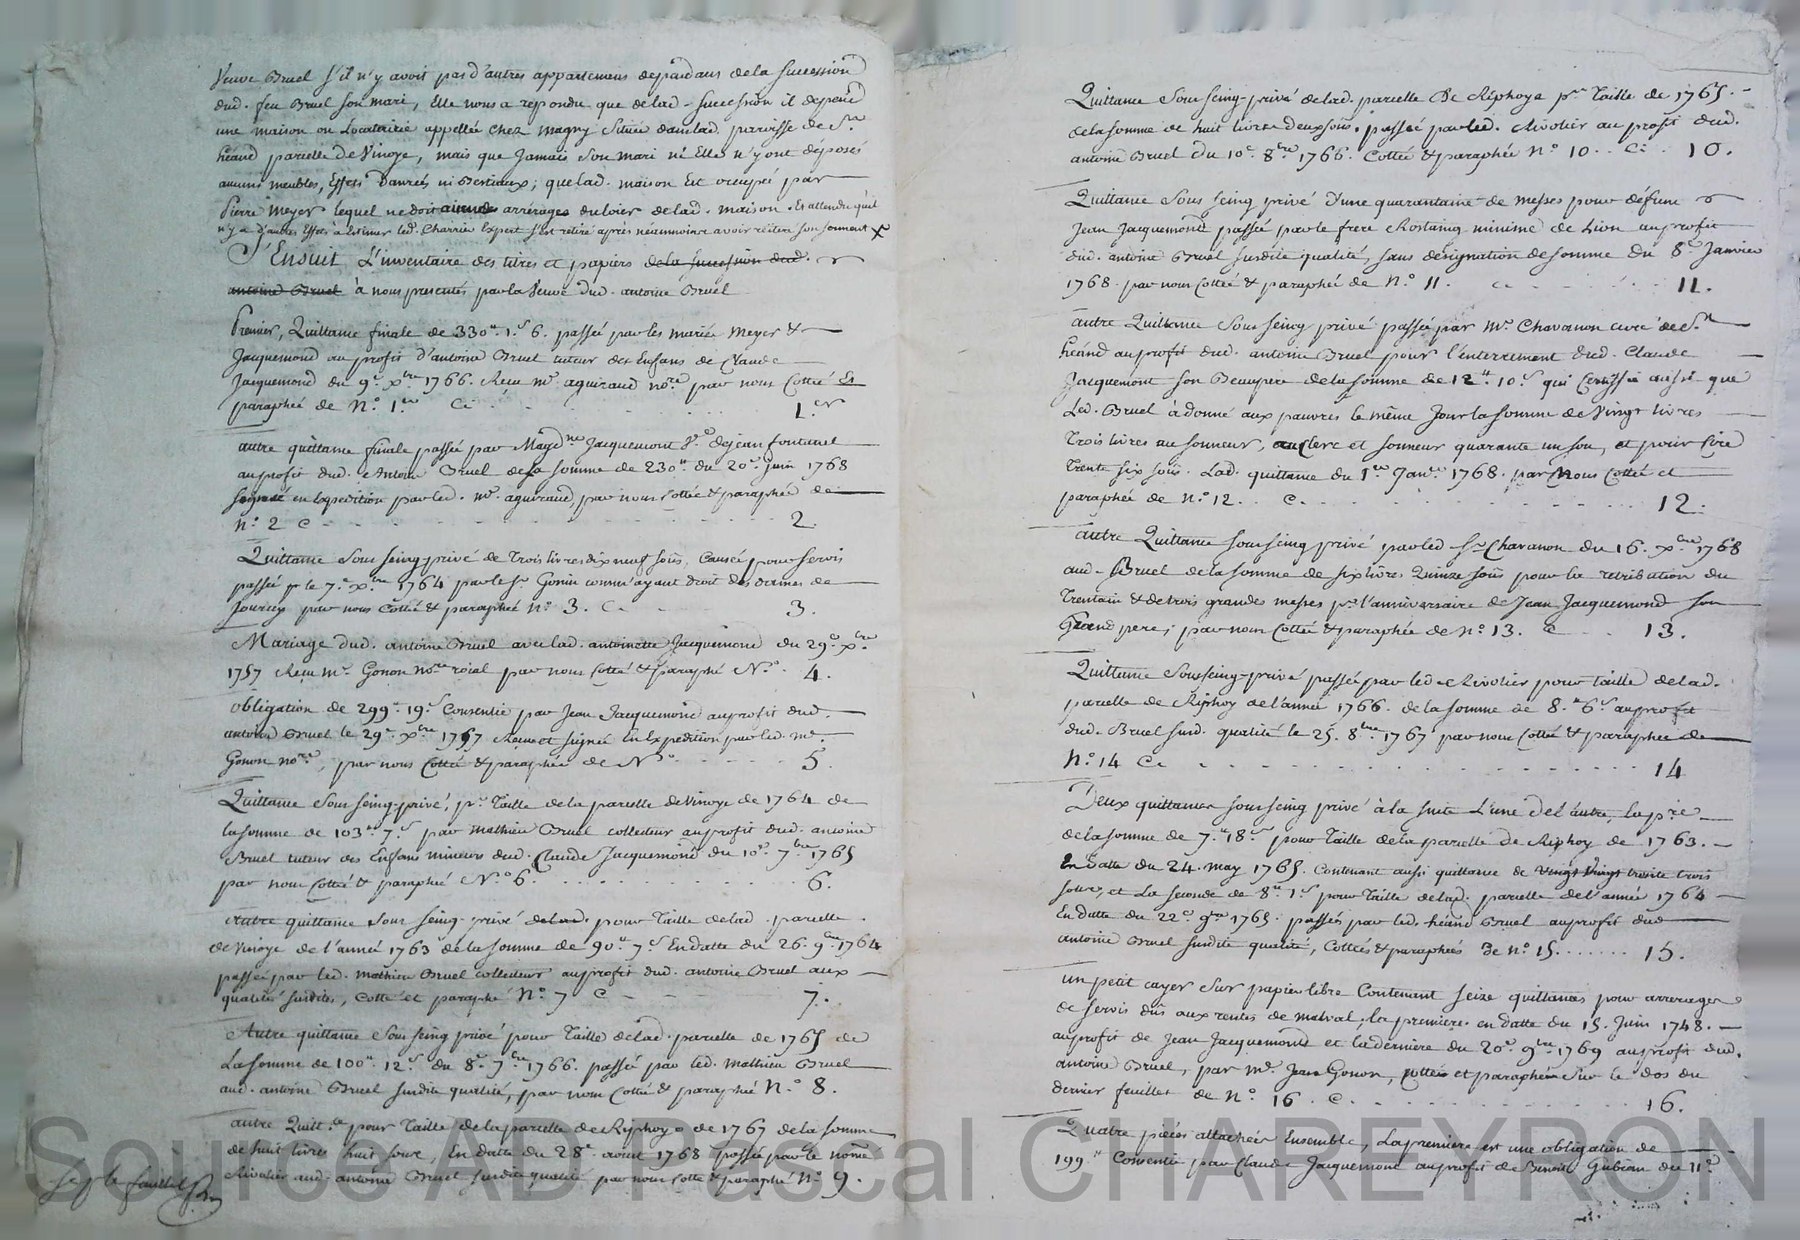 Veuve Bruel s'il n'y avoit pas d'autres appartemens dependans de la succession
dud. feu Bruel son mari, Elle nous a répondu que de lad. succession il depend
une maison ou Locaterie appellée chez Magny située dans lad. parroisse de St
héand parcelle de Vinoye, mais que Jamais son mari ni Elle n'y ont déposés
aucuns meubles, Effets Danrées ni Bestiaux; que lad. maison Est occupée par
Pierre Meyer lequel ne doit arrérages du loier de lad. maison. Et attendu qu'il
n'y a d'autres Effets à Estimer led. Charrier Expert s'est retiré après néammoins avoir réitéré son serment
S'Ensuit L'inventaire des titres et papiers de la succession dud.
antoine Bruel à nous presentés par la Veuve dud. antoine Bruel
Premier, Quittance finale de 330tt. 1s 6. passée par les mariés Meyer &
Jacquemond au profit d'antoine Bruel tuteur des Enfans de Claude
Jacquemond du 9e xbre 1766. Recu me aguiraud nore par nous Cottée Et
paraphée de N° 1er Ci 1er
autre quittance finale passée par Magdne Jacquemont Ve de jean fontanel
au profit dud. Antoine Bruel de la somme de 230tt du 20e juin 1768
signée en Expedition par led. me aguiraud, par nous Cottée & paraphée de
N° 2 C 2.
Quittance sous seing-privé de trois livres dix neuf sous, Causée pour servis
passée le 7e xbre 1764 par le Sr Gonin comm' ayant droit des dames de
Jourcey par nous Cottée & paraphée N° 3. C. 3.
Mariage dud. antoine Bruel avec lad. antoinette Jacquemond du 29e xbre
1757 Recu me Gonon nore roial par nous Cotté & paraphé N° 4.
Obligation de 299tt 19s Consentie par Jean Jacquemond au profit dud.
antoine Bruel le 29e xbre 1757 Recue et signée En Expedition par led. me
Gonon nore, par nous Cottée & paraphée de N° 5.
Quittance sous seing-privé, pr taille de la parcelle de Vinoye de 1764 de
la somme de 103tt 7s par mathieu Bruel collecteur au profit dud. antoine
Bruel tuteur des Enfans mineurs dud. Claude Jacquemond du 10e 7bre 1765
par nous Cottée & paraphée N° 6. 6.
Autre quittance sous seing-privé de lad. pour Taille de lad. parcelle
de Vinoye de l'année 1763 de la somme de 90tt 7s En datte du 26. 9bre 1764
passée par led. mathieu Bruel collecteur au profit dud. antoine Bruel aux
qualités susdites, Cottée et paraphée N° 7 C 7.
Autre quittance sous seing privé pour Taille de lad. parcelle de 1765 de
La somme de 100tt 12s du 8e 7bre 1766. passée par led. Mathieu Bruel
aud. antoine Bruel susdite qualité, par nous Cottée & paraphée N° 8.
autre Quitt.ce pour Taille de la parcelle de Riphoye de 1767 de la somme
de huit livres huit sous, En datte du 28e aout 1768 passée par le nommé
Rivolier aud. antoine Bruel susdite qualité par nous Cottée & paraphée N° 9.
Quittance Sous seing-privé de lad. parcelle De Riphoye pr Taille de 1765.
de la somme de huit livres deux sous. passée par led. Rivolier au profit dud.
antoine Bruel du 10e 8bre 1766. Cottée & paraphée N° 10. Ci. 10.
Quittance sous seing privé d'une quarantaine de messes pour défunt
Jean Jacquemond passée par le frere Rostaing minime de Lion au profit
dud. antoine Bruel susdite qualité, sans désignation de somme du 8e Janvier
1768. par nous Cottée & paraphée de N° 11. C 11.
autre Quittance sous seing privé passée par Mr Chavanon curé de St
héand au profit dud. antoine Bruel pour l'enterrement dud. Claude
Jacquemont son Beaupere de la somme de 12tt 10s qui Certiffie aussi que
Led. Bruel à donné aux pauvres le même Jour la somme de Vingt livres
Trois livres au sonneur, au clerc et sonneur quarante un sou, et pour Cire
Trente six sous. Lad. quittance du 1er Janer 1768. par Nous Cottée et
paraphée de N° 12. C. 12.
autre Quittance sous seing privé par led Sr Chavanon du 16. xbre 1768
aud. Bruel de la somme de six livres Quinze sous pour la retribution du
Trentain & de trois grandes messes pr l'anniversaire de Jean Jacquemond son
Grand pere; par nous Cottée & paraphée de N° 13. C 13.
Quittance sous seing-privé passée par led. Rivolier pour taille de lad.
parcelle de Riphoy de l'année 1766. de la somme de 8.tt 6s au profit
dud. Bruel susd. qualité le 25. 8bre 1767 par nous Cottée & paraphée de
N° 14 C. 14
Deux quittances sous seing privé à la suite L'une de l'autre, la pre
de la somme de 7.tt 18s pour Taille de la parcelle de Riphoy de 1763.
En Datte du 24. may 1765. Contenant aussi quittance de vingt Vingt trois
sous, et La seconde de 8tt 1s pour Taille de lad. parcelle de l'année 1764
En datte du 22e 9bre 1765. passées par led. héand Bruel au profit dud
antoine Bruel susdite qualité, Cottées & paraphées De N° 15. 15.
un petit cayer sur papier libre Contenant seize quittances pour arrerages
de servis dûs aux rentes de malval; la premiere en datte du 15. Juin 1748.
au profit de Jean Jacquemond et la derniere du 20e 9bre 1769 au profit dud.
antoine Bruel, par Me Jean Gonon, Cottées et paraphées sur le dos du
dernier feuillet de N° 16. C. 16.
Quatre pièces attachées Ensemble, La premiere est une obligation de
199tt Consentie par Claude Jacquemont au profit de Benoit Gubian du 11e
Source AD Pascal CHAREYRON